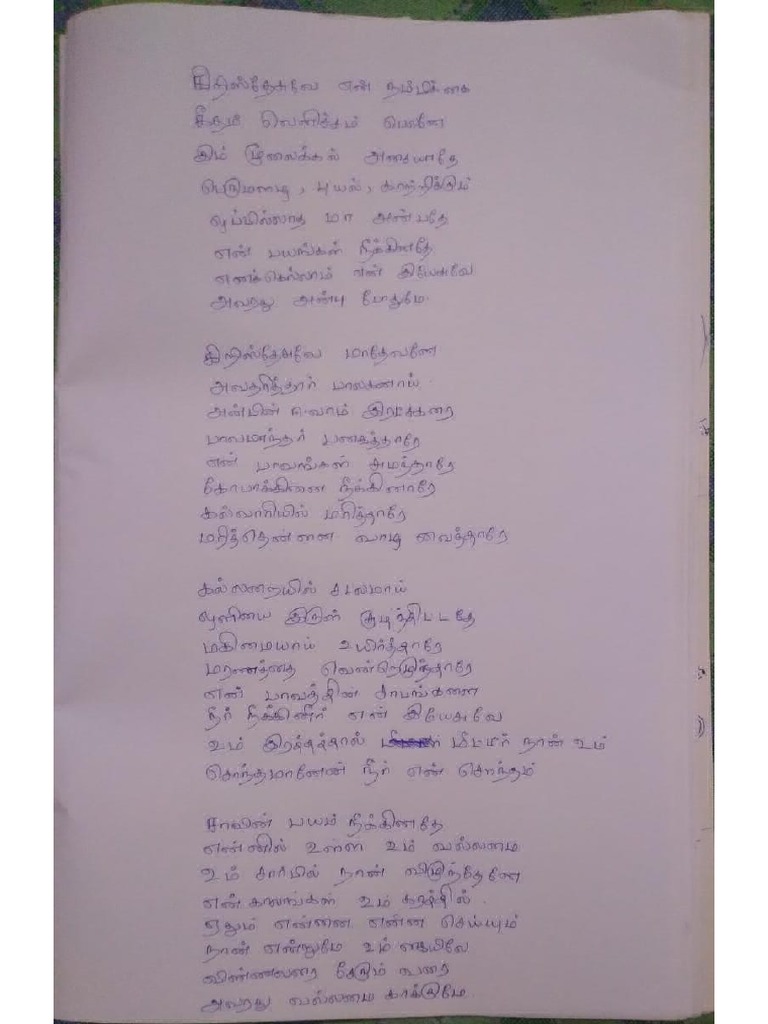 கிறிஸ்தேசுவே என் நம்பிக்கை
நீரும் வெளிச்சம் பெலனே
இம் மூலைக்கல் அசையாதே
பெருமழை, புயல், காற்றிக்கும்
ஒப்பில்லாத மா அன்பதே
என் பயங்கள் நீக்கினதே
எனக்கெல்லாம் என் இயேசுவே
அவரது அன்பு போதுமே
கிறிஸ்தேசுவே மாதேவனே
அவதரித்தார் பாலகனாய்
அன்பின் ஈவாம் இரட்சகரை
பாவமாந்தர் பகைத்தாரே
என் பாவங்கள் சுமந்தாரே
கோபாக்கினை நீக்கினாரே
கல்வாரியில் மரித்தாரே
மரித்தென்னை வாழ வைத்தாரே
கல்லறையில் சடலமாய்
ஒளியை இருள் சூழ்ந்திட்டதே
மகிமையாய் உயிர்த்தாரே
மரணத்தை வென்றெழுந்தாரே
என் பாவத்தின் சாபங்களை
நீர் நீக்கினீர் என் இயேசுவே
உம் இரத்தத்தால் மீட்டீர் நான் உம்
சொந்தமானேன் நீர் என் சொந்தம்
சாவின் பயம் நீக்கினதே
என்னில் உள்ள உம் வல்லமை
உம் சார்பில் நான் விழுந்தேனே
என் காலங்கள் உம் கரத்தில்
ஏதும் என்னை என்ன செய்யும்
நான் என்றுமே உம் கையிலே
விண்ணவரை சேரும் வரை
அவரது வல்லமை காக்குமே